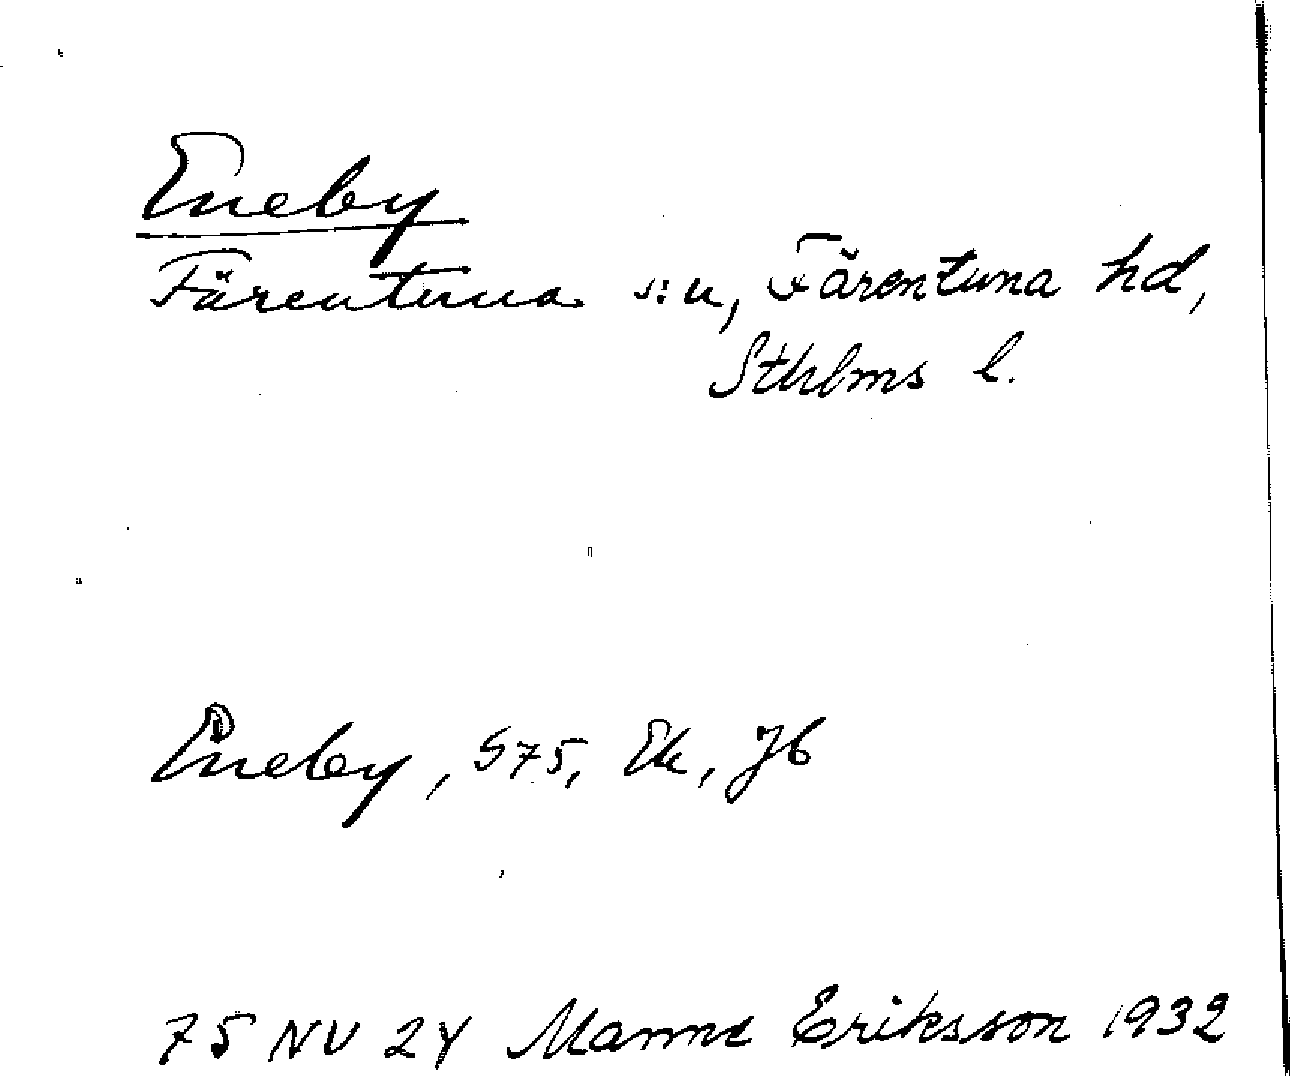 Eneby
Färentuna s:n, Färentuna hd,
Sthlms l.
Eneby, S75, Ek, Jb
75 NV 24 Manne Eriksson 1932